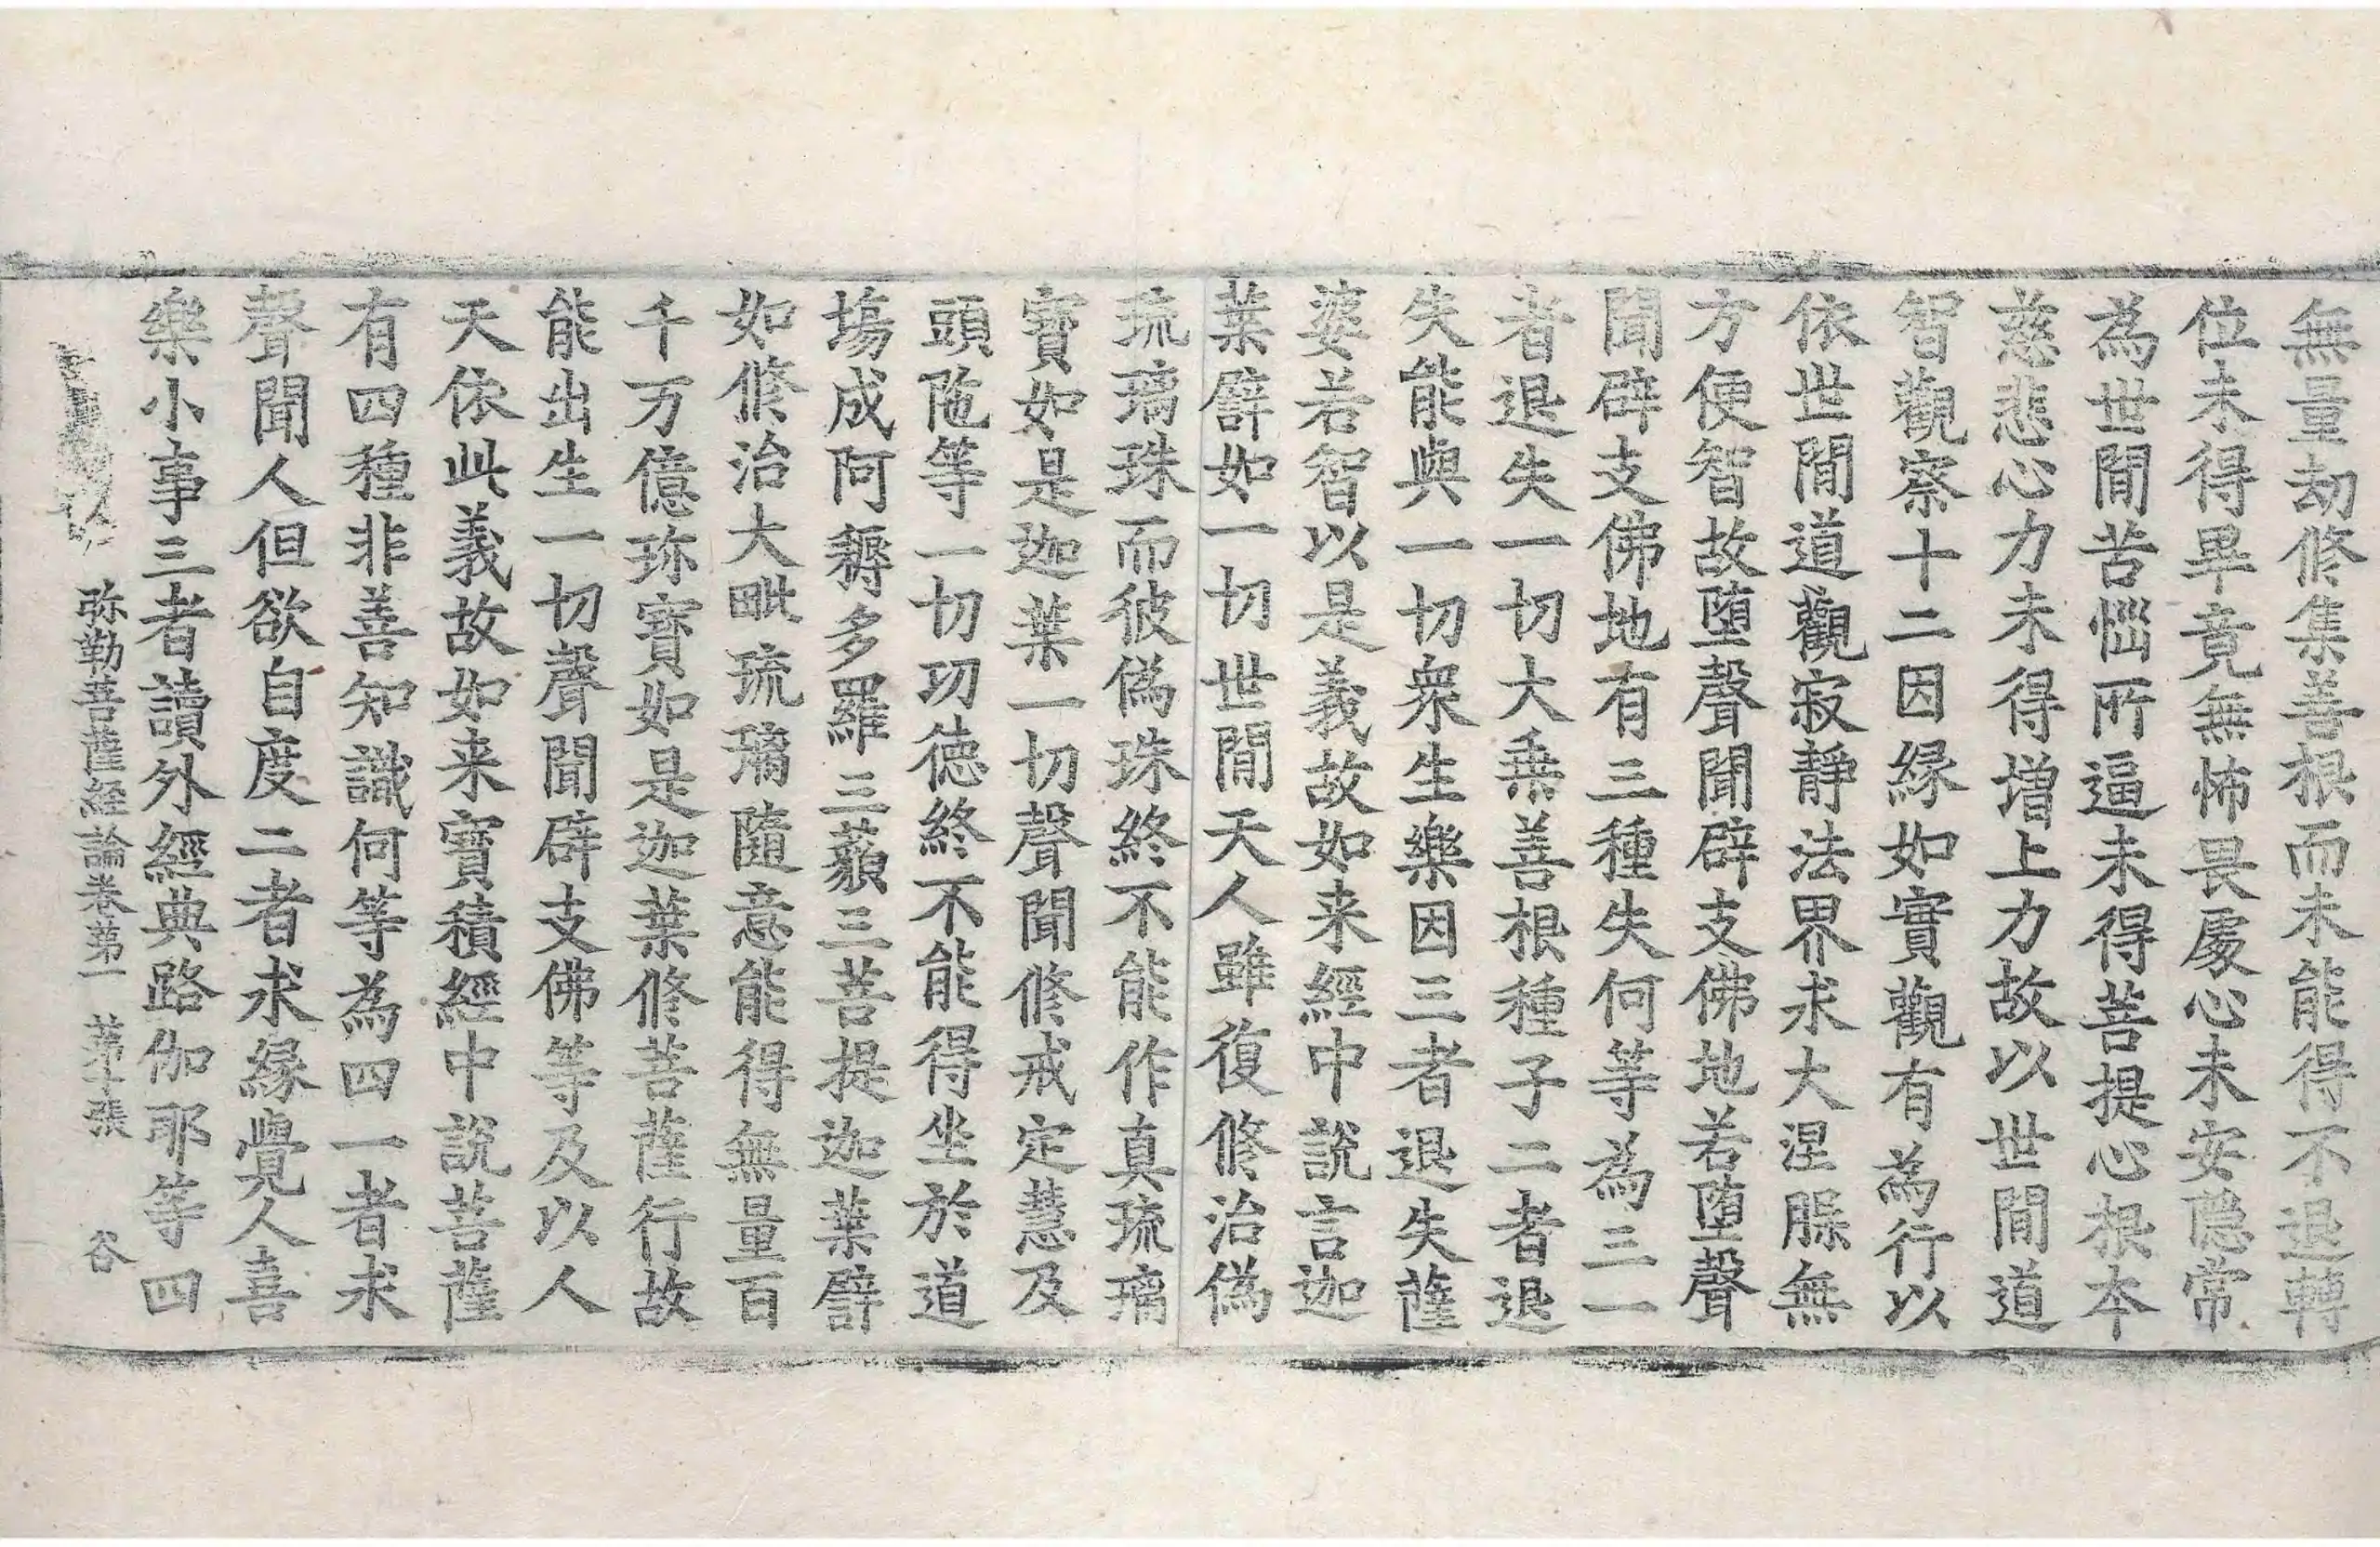 無量劫修集善根而未能得不退轉
位未得畢竟無怖畏處心未安隱常
為世間苦惱所逼未得菩提心根本
慈悲心力未得增上力故以世間道
智觀察十二因緣如實觀有為行以
依世間道觀寂靜法界求大涅槃無
方便智故墮聲聞辟支佛地若墮聲
聞辟支佛地有三種失何等為三一
者退失一切大乘善根種子二者退
失能與一切衆生樂因三者退失薩
婆若智以是義故如来經中說言迦
葉譬如一切世間天人雖復修治偽
琉璃珠而彼偽珠終不能作真琉璃
寶如是迦葉一切聲聞修戒定慧及
頭陁等一切功德終不能得坐於道
塲成阿耨多羅三藐三菩提迦葉譬
如修治大毗琉璃隨意能得無量百
千万億珎寶如是迦葉修菩薩行故
能出生一切聲聞辟支佛等及以人
天依此義故如来寶積經中說菩薩
有四種非善知識何等為四一者求
聲聞人但欲自度二者求緣覺人喜
樂小事三者讀外經典路伽耶等四
弥勒菩薩経論卷苐一 苐十張 谷